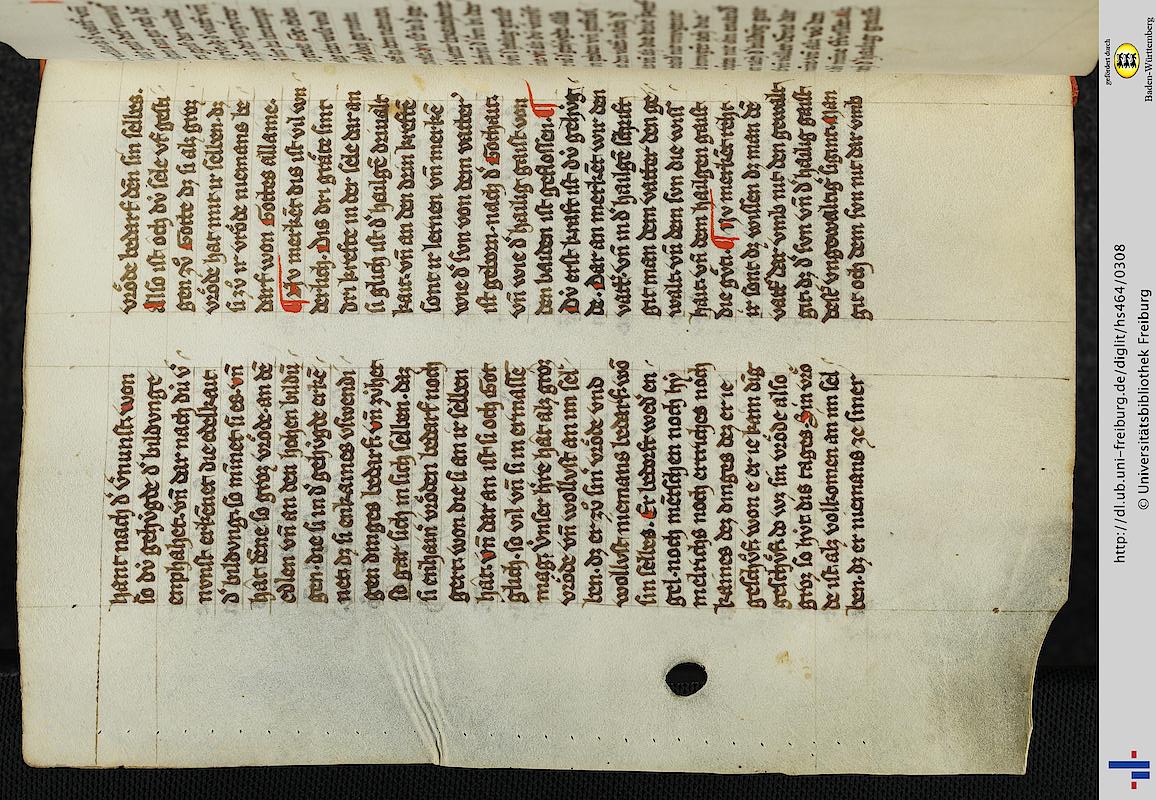 hant nach d' v'nunft. won
so dv́ gehv́gde d' bildvnge
enphahet. vn̄ dar nach dú v'
nunft erkēnet die edelkait
d' bildvng. so mīnet si es. vn̄
hat dēne so groz vröde. an dē
edlen vn̄ an den hohen bildū
gen. die si in d' gehv́gde erkē
net dz si enkaines vswendi
gen dinges bedarf. vn̄ zv̊het
so gar sich in sich selben. daz
si enhain vröden bedarf noch
gert. won die si an ir selben
hat. vn̄ dar an ist si och got
gilich. so vil vn̄ si in ermasse
mag. Vnser h're hat alz groz
vröde vn̄ wollvst an im sel
ben. dz er zv̊ sin vröde vnd
wollvst niemans bedarf. wō
sin selbes. Er bedorft wed' en
gel. noch mētschen noch hi
melrichs noch ertriches noch
kaines dez dinges dez er ie
geschv̊f. won e er ie kain dīg
geschv̊f. do wz sin vröde also
groz. so hv́t dis tages. Sin vrö
de ist alz volkomen an im sel
ben. dz er niemans ze siner
vröde bedarf dēn sin selbes.
Also ist och dv́ sele vf gesti
gen. zv̊ Gotte dz si alz groz
vröde hat mit ir selben. dz
si zv̊ ir vröde niemans be
darf. won Gottes allaine.
merkēt dis ist vil wn
derlich. Dis dri gräte sint
dri krefte in der sele. dar an
si glich ist d' hailgē driualt
kait. vn̄ an den drin krefte
sont ir lernen vn̄ merkē
wie d' svn von dem vatter
ist geborn. nach d' Gothait.
vn̄ wie d' hailig gaist von
den baiden ist geflossen.
Dv́ erst kraft ist dv́ gehv́g
de. Dar an merkēt wir den
vatt'. vn̄ in d' hailgē schrift
git man dem vatter den ge
walt. vn̄ dem svn die wis
hait. vn̄ dem hailgen gaist
die gv̊ti. merkēt reht
ir sont dz wissen dz man dē
vatt' dar vmb nit den gewalt
git. dz d' svn vn̄ d' hailig gaist
dest' vngewaltig' sigint. Man
git och dem svn nit dar vmb
http://dl.ub.uni-freiburg.de/diglit/hs464/0308
© Universitätsbibliothek Freiburg
gefördert durch
Baden-Württemberg